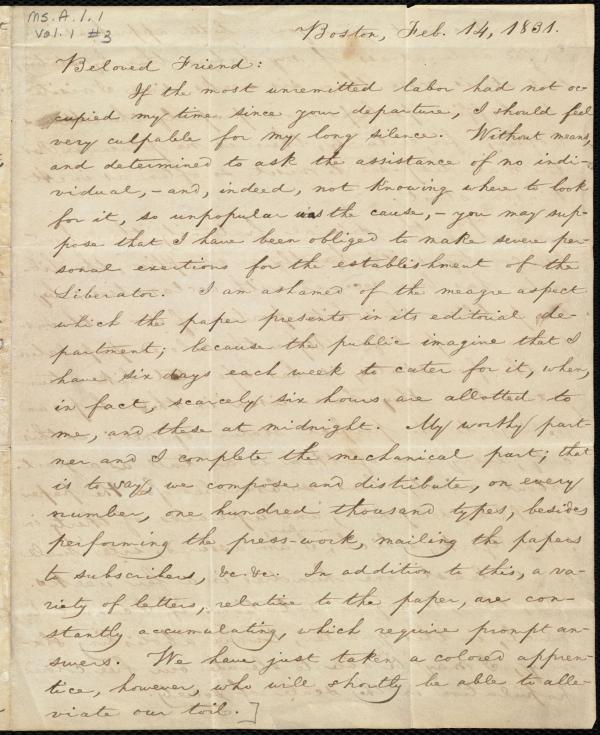 Ms. A. 1. 1
Vol. 1 #3
Boston, Feb. 14, 1831.
Beloved Friend:
If the most unremitted labor had not oc-
cupied my time since your departure, I should feel
very culpable for my long silence. Without means,
and determined to ask the assistance of no indi-
vidual, – and, indeed, not knowing where to look
for it, so unpopular was the cause, – you may sup-
pose that I have been obliged to make severe per-
sonal exertions for the establishment of the
Liberator. I am ashamed of the meagre aspect
which the paper presents in its editorial de-
partment; because the public imagine that I
have six days each week to cater for it, when,
in fact, scarcely six hours are allotted to
me, and these at midnight. My worthy part-
ner and I complete the mechanical part; that
is to say, we compose and distribute, on every
number, one hundred thousand types, besides
performing the press-work, mailing the papers
to subscribers, &c. &c. In addition to this, a va-
riety of letters, relative to the paper, are con-
stantly accumulating, which require prompt an-
swers. We have just taken a colored appren-
tice, however, who will shortly be able to alle-
viate our toil.]